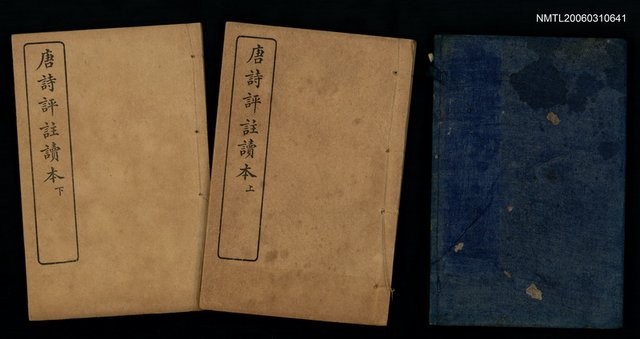 NMTL20060310641
唐詩評註讀本上
唐詩評註讀本下